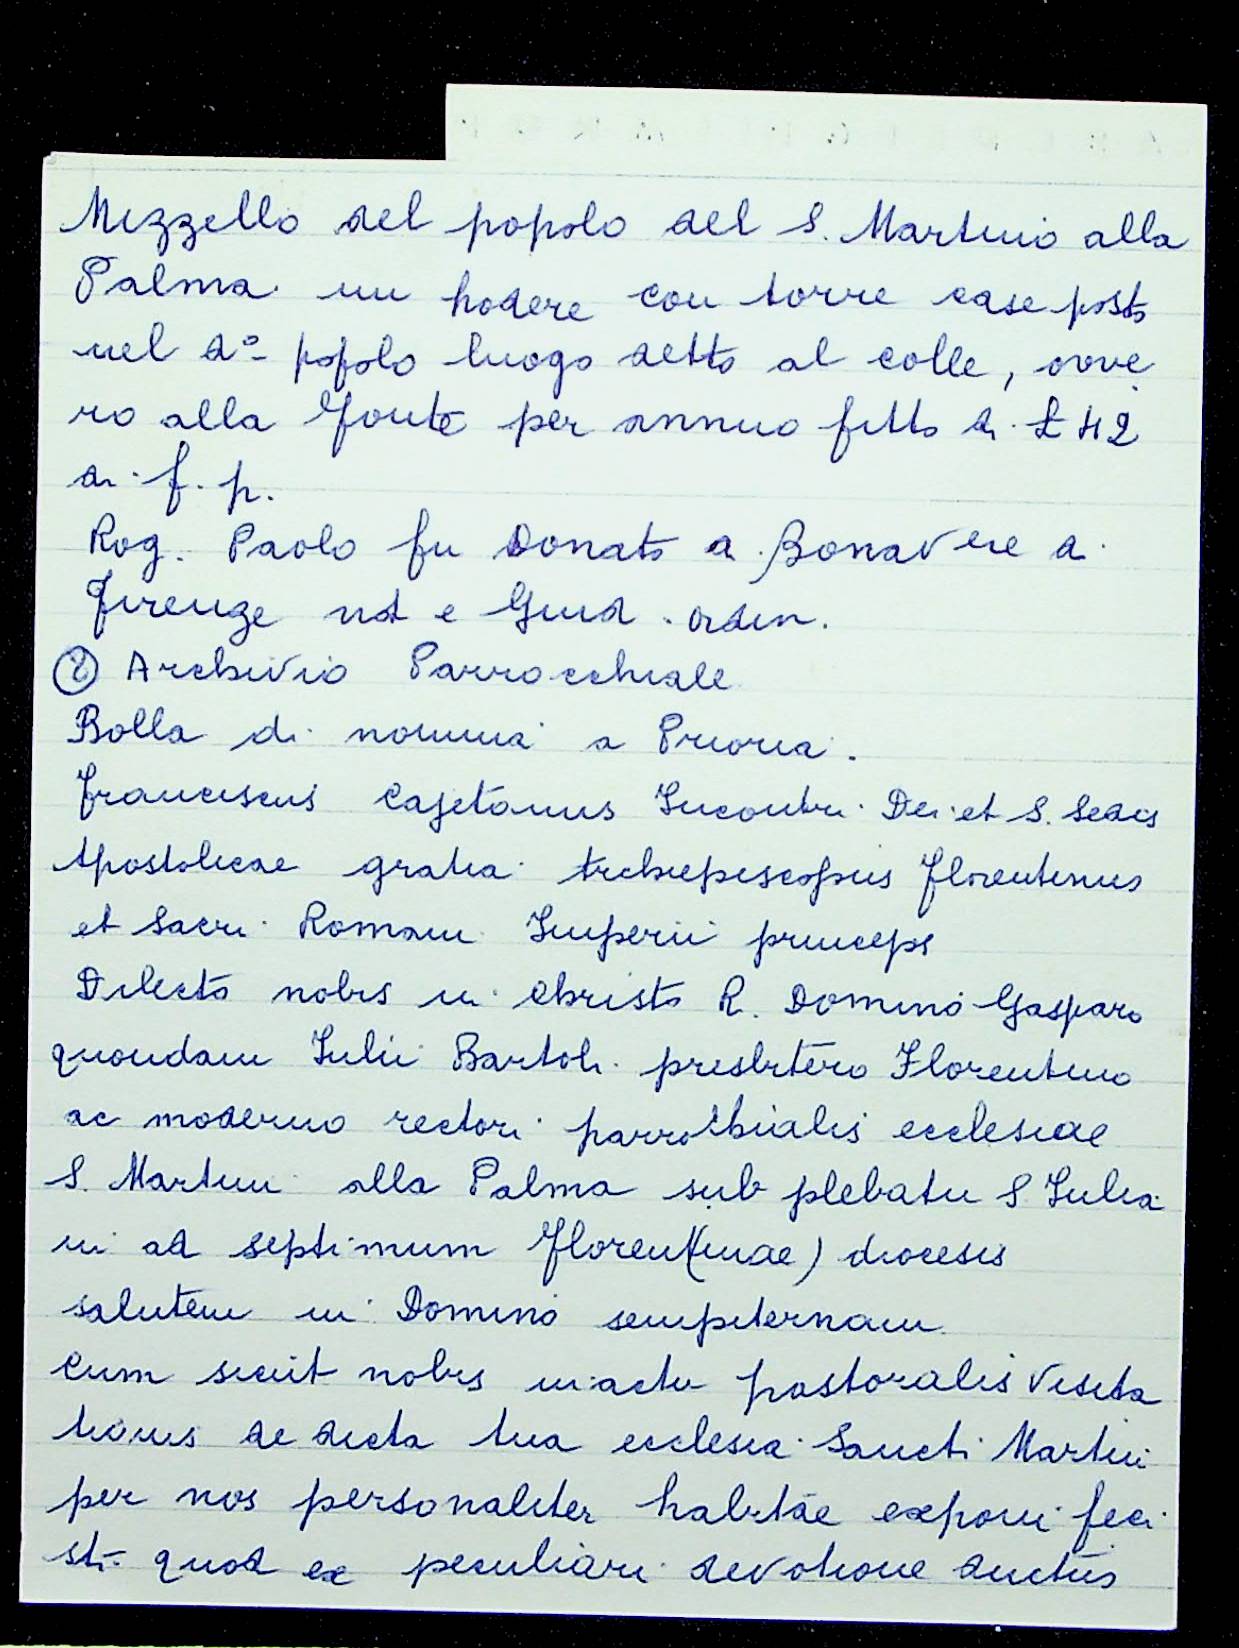 Mizzello del popolo del S. Martino alla
Palma un podere con torre case posto
nel d.º popolo luogo detto al colle, ovve
ro alla Fonte per annuo fitto di £ 42
di f. p.
Rog. Paolo fu Donato a Bonavere di
Firenze not e Giud. ordin.
② Archivio Parrocchiale
Bolla di nomina a Prioria.
Franciscus Cajetanus Incontri Dei et S. Sedis
Apostolicae gratia Archiepiscopus Florentinus
et Sacri Romani Imperii princeps
Dilecto nobis in Christo R. Domino Gasparo
quondam Iulii Bartoli presbitero Florentino
ac moderno rectori parrochialis ecclesiae
S. Martini alla Palma sub plebatu S Iulia
ni ad septimum Floren(tinae) diocesis
salutem in Domino sempiternam
Cum sicut nobis in actu pastoralis visita
tionis de dicta tua ecclesia Sancti Martini
per nos personaliter habitae exponi feci
sti quod ex peculiari devotione ductus